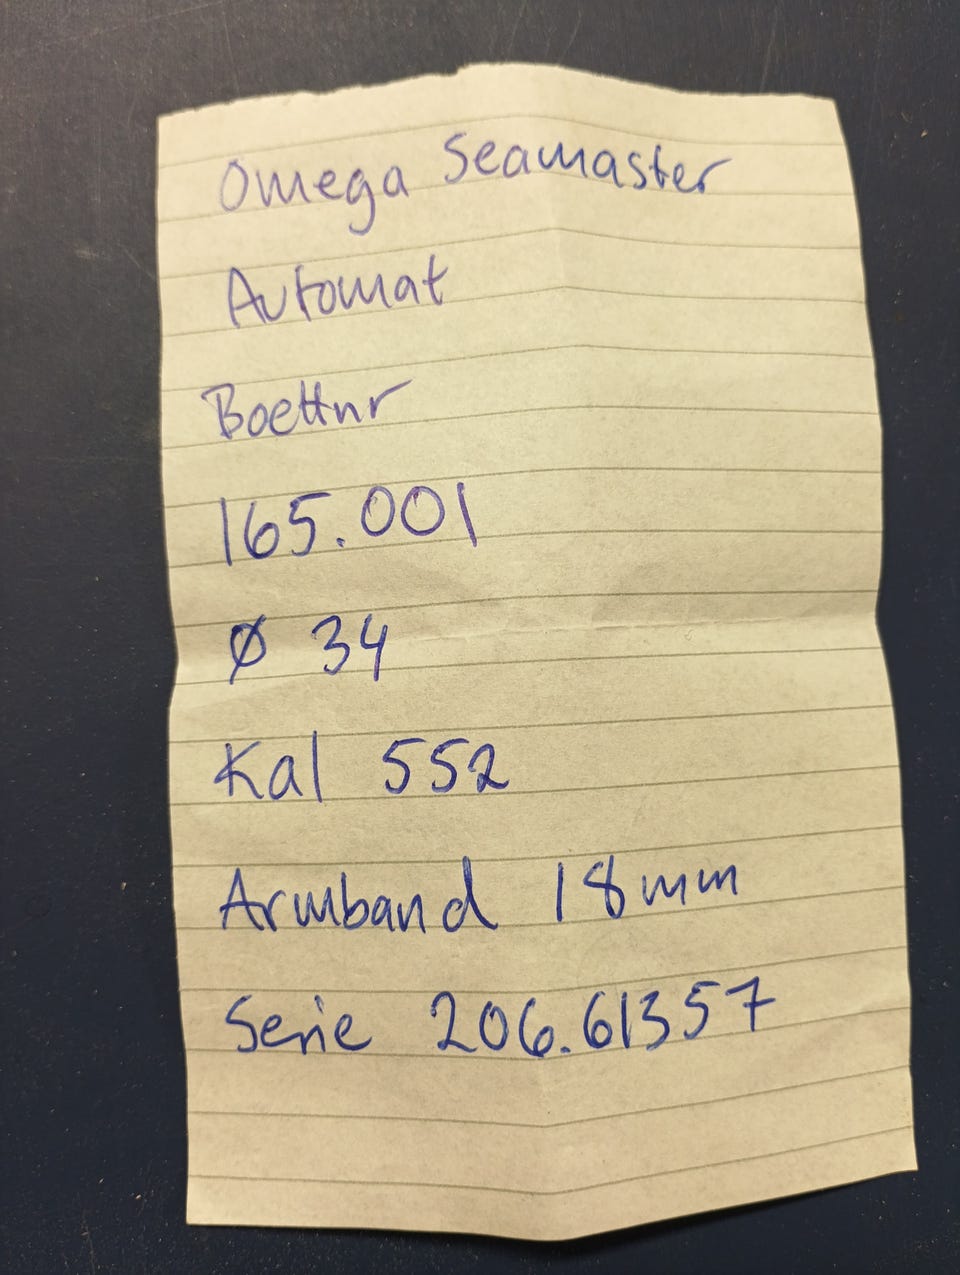 Omega Seamaster
Automat
Boettnr
165.001
Ø 34
Kal 552
Armband 18mm
Serie 206.61357